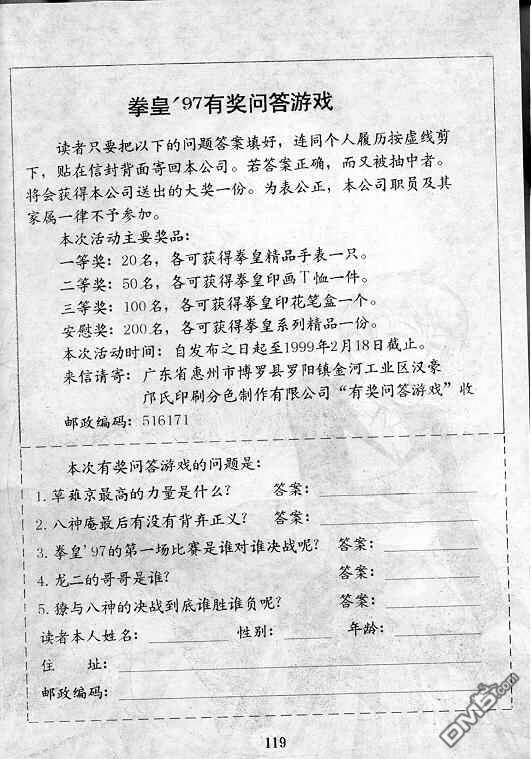 拳皇'97有奖问答游戏
读者只要把以下的问题答案填好，连同个人履历按虚线剪
下，贴在信封背面寄回本公司。若答案正确，而又被抽中者。
将会获得本公司送出的大奖一份。为表公正，本公司职员及其
家属一律不予参加。
本次活动主要奖品：
一等奖：20名，各可获得拳皇精品手表一只。
二等奖：50名，各可获得拳皇印画T恤一件。
三等奖：100名，各可获得拳皇印花笔盒一个。
安慰奖：200名，各可获得拳皇系列精品一份。
本次活动时间：自发布之日起至1999年2月18日截止。
来信请寄：广东省惠州市博罗县罗阳镇金河工业区汉豪
邝氏印刷分色制作有限公司“有奖问答游戏”收
邮政编码：516171
本次有奖问答游戏的问题是：
1. 草薙京最高的力量是什么？ 答案：
2. 八神庵最后有没有背弃正义？ 答案：
3. 拳皇'97的第一场比赛是谁对谁决战呢？ 答案：
4. 龙二的哥哥是谁？ 答案：
5. 獠与八神的决战到底谁胜谁负呢？ 答案：
读者本人姓名： 性别： 年龄：
住 址：
邮政编码：
119
DM5.com